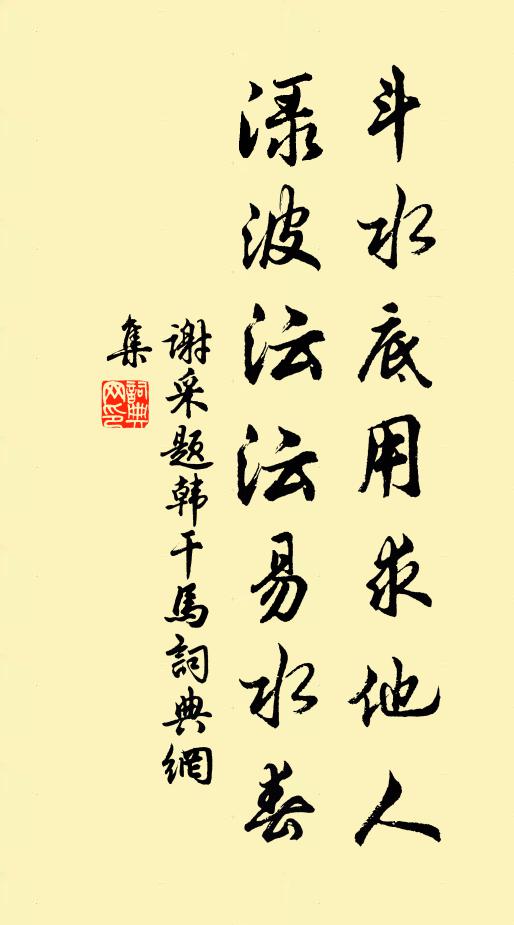 斗水底用求他人
渌波沄沄易水春
谢采题韩干馬詞典網
集
詞典网印